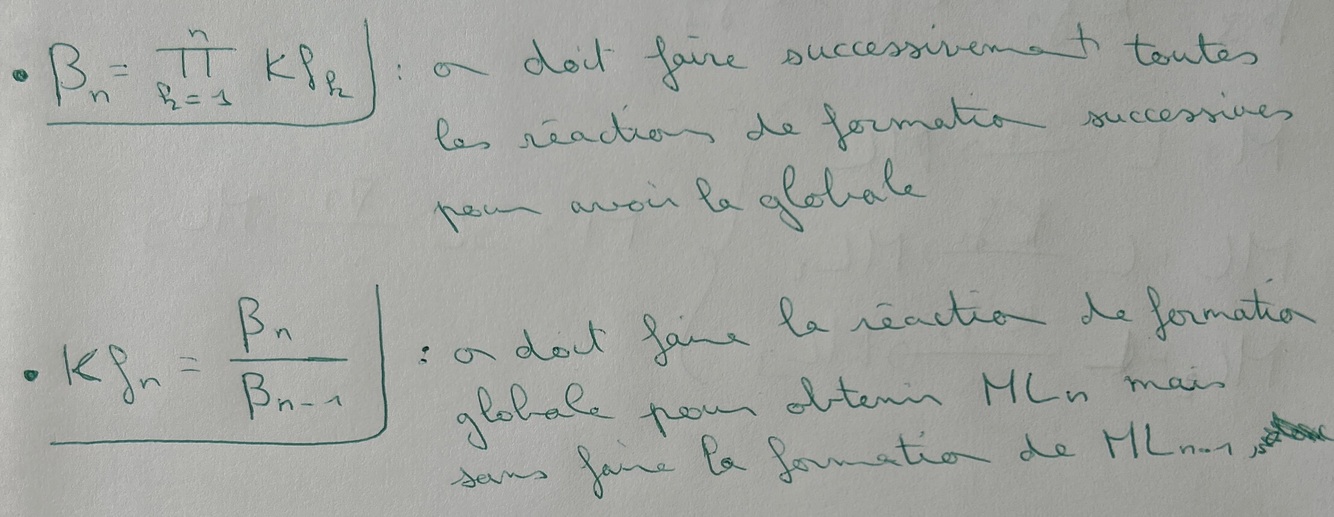 • βn = ∏ (k=1 → n) Kfk : on doit faire successivement toutes
les réactions de formation successives
pour avoir la globale
• Kfn = βn / βn-1 : on doit faire la réaction de formation
globale pour obtenir MLn mais
sans faire la formation de MLn-1